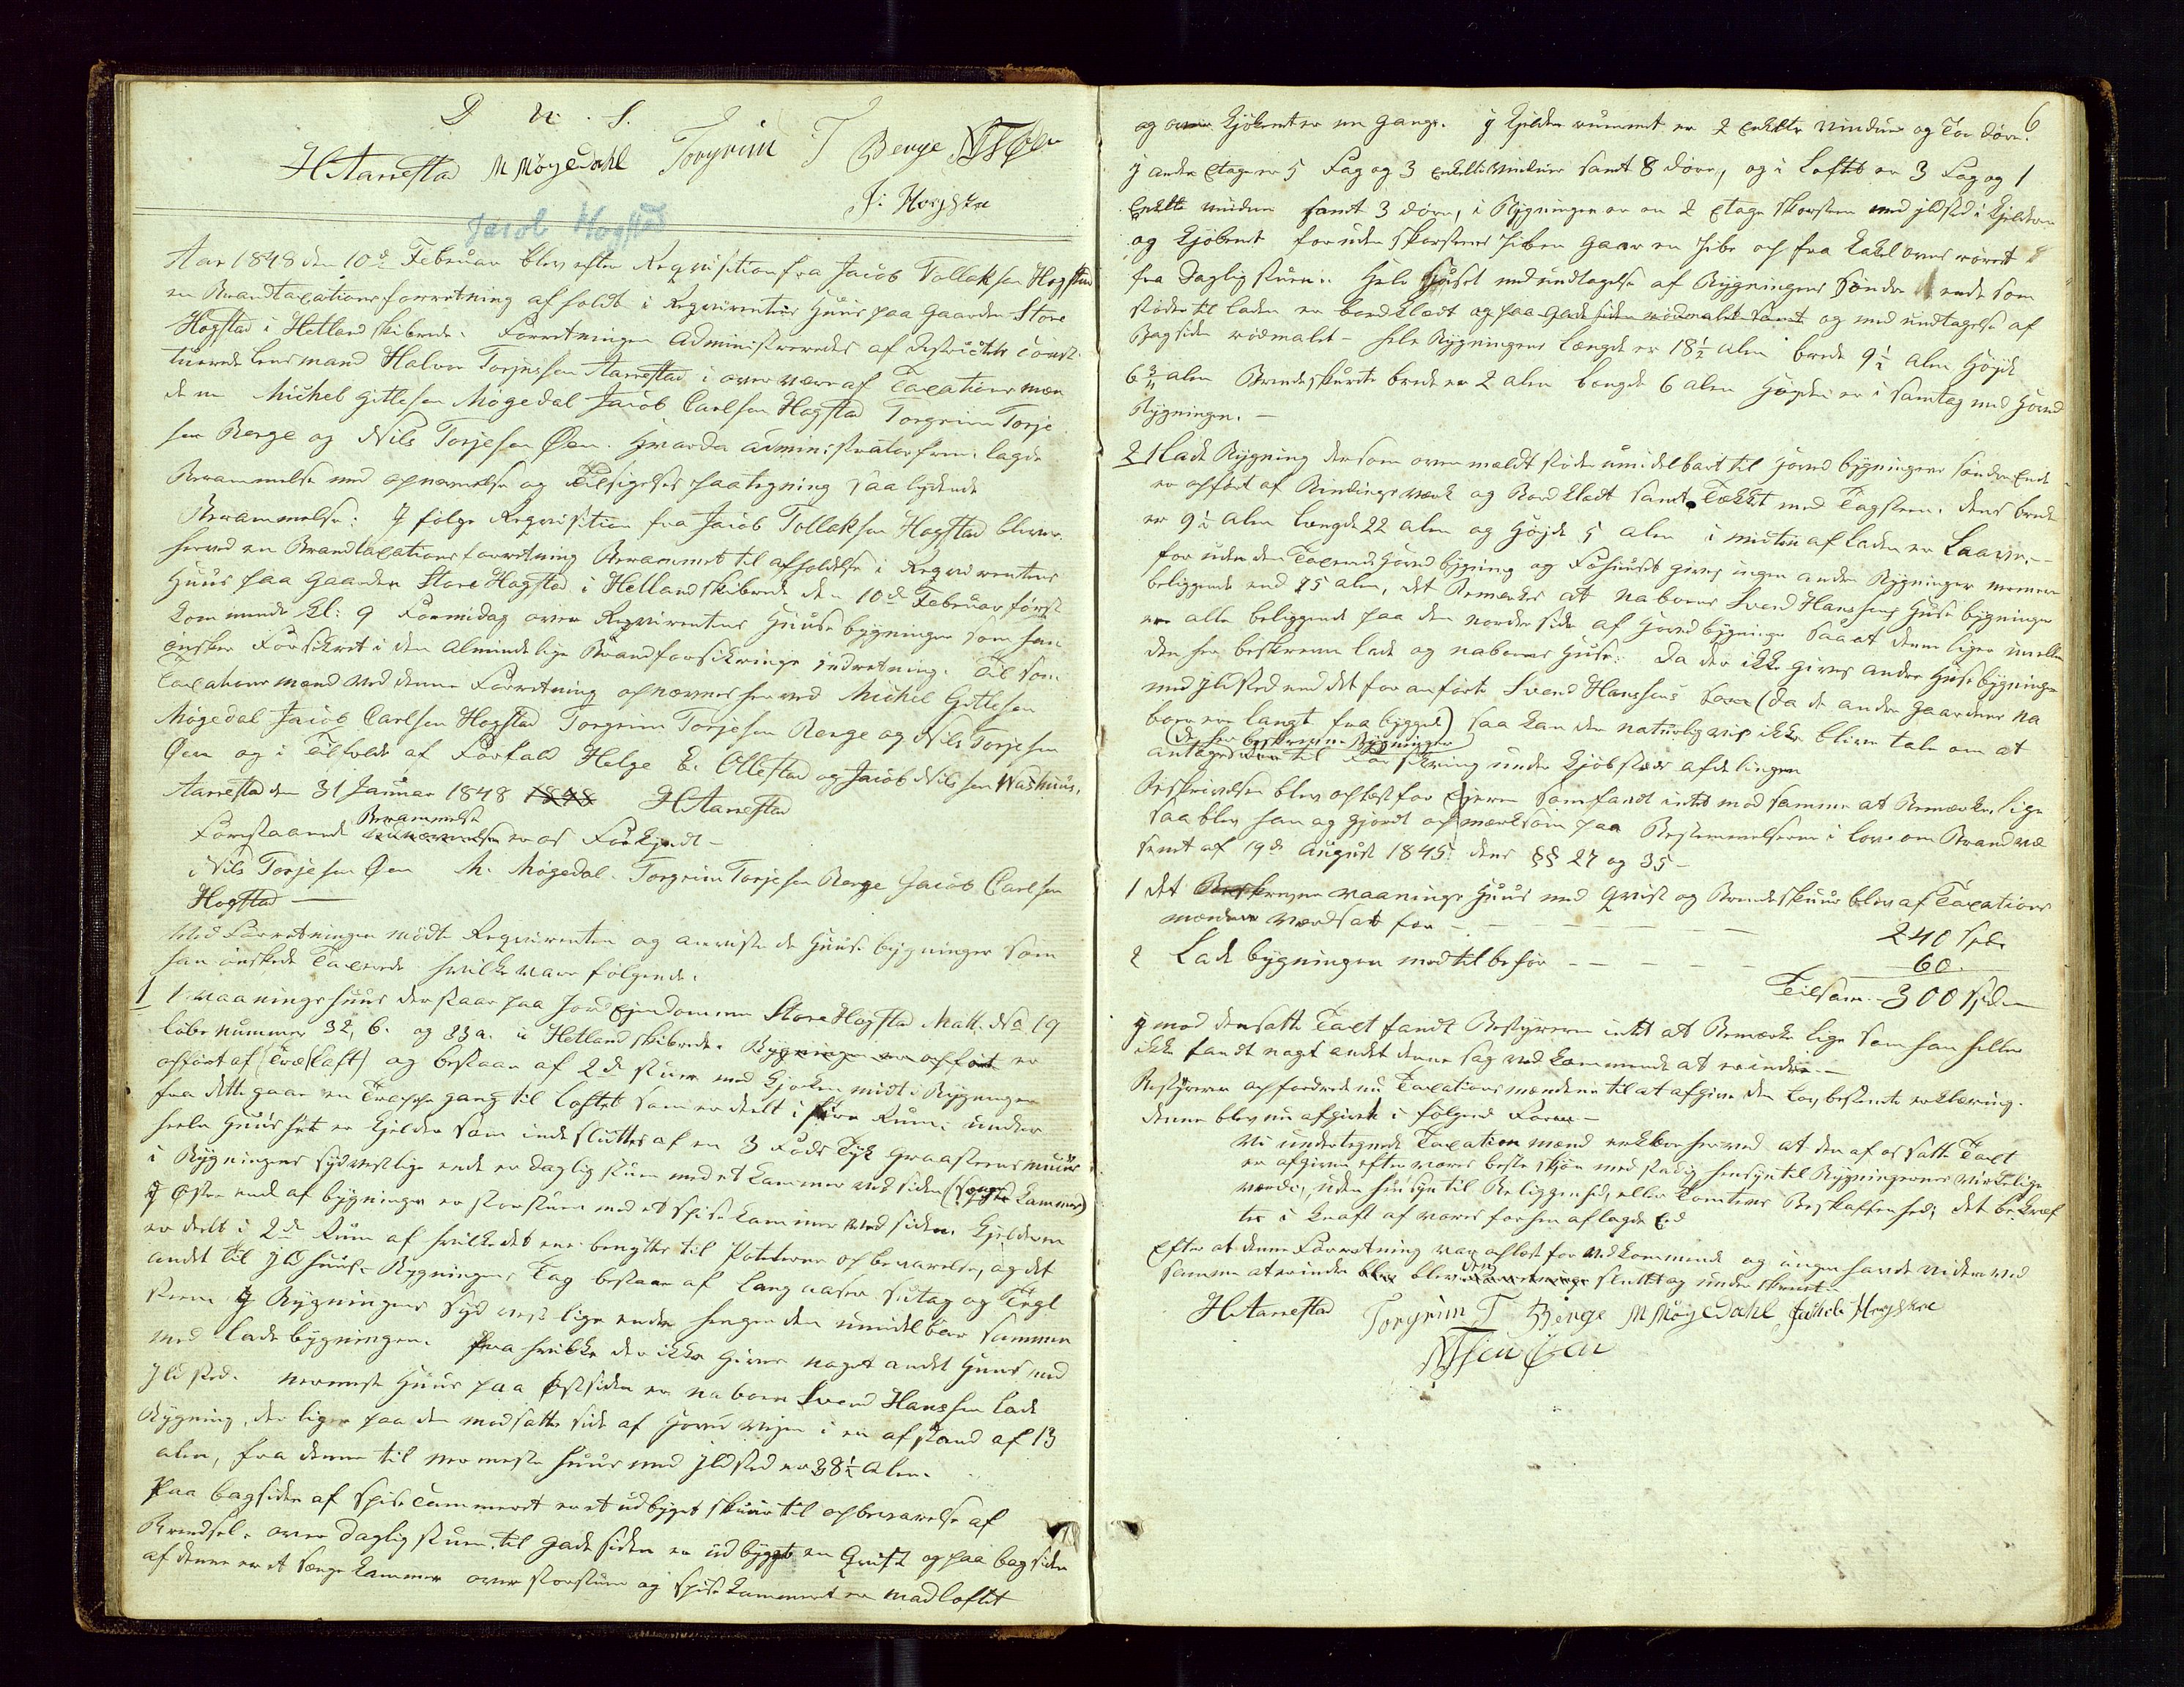 D. u. S.
HAarrestad M Møgedahl Torgrim T Berge NTØen
J: Hogsta
Jacob Hogstad
Aar 1848 den 10de Februar blev efter Reqvisition fra Jacob Tollaksen Hogstad
en Brandtaxationsforretning afholdt i Reqvirentens Huus paa Gaarden Store
Hogstad i Hetland skibrede. Forretningen administreredes af districtets const-
tuerede Lensmand Halvor Torjussen Aarrestad i overvær af Taxationsmæn
dene Michel Gitlesen Møgedal Jacob Carlsen Hogstad Torgrim Torje
sen Berge og Nils Torjesen Øen. Hvorda administrator frem lagde
Berammelse med opnævnelse og Tilsigelses paategning saa lydende
Berammelse: I følge Reqvisition fra Jacob Tollaksen Hogstad bliver
herved en Brandtaxationsforretning Berammet til afholdelse i Reqvirentens
Huus paa Gaarden Store Hogstad i Hetland skibrede den 10de Februar først
kommende Kl: 9 Formidag over Reqvirentens Huusebygninger som han
ønsker Forsikret i den almindelige Brandforsikrings indretning. Til som
Taxationsmænd ved denne Forretning opnævnes herved Michel Gitlesen
Møgedal Jacob Carlsen Hogstad Torgrim Torjesen Berge og Nils Torjesen
Øen og i Tilfælde af Forfald Helge E. Ollestad og Jacob Nilssen Washuus.
Aarrestad den 31 Januar 1848 1848 HAarrestad
Berammelse
Forestaaende er os Forkyndt –
Nils Torjesen Øen M. Møgedal. Torgrim Torjesen Berge Jacob Carlsen
Hogstad —
Ved Forretningen mødte Reqvirenten og anviste de Huusebygninger som
han ønskede Taxerede hvilke vare følgende.
1 1 vaaningshuus der staar paa Jordejendommen Store Hogstad Matt. No 19
løbe nummer 32, b. og 33 a. i Hetland skibrede. Bygningen er opført er
opført af (Træ/Laft) og bestaar af 2de stuer med Kjøken midt i Bygningen
fra dette gaar en Trappegang til Loftet som er deelt i fire Rum: under
heele Huuset er Kjelder som indesluttes af en 3 Fods Tyk Graasteensmuur
i Bygningens sydvestlige ende er daglig stuen med et kammer ved siden (senge kammer)
I Østre ende af bygningen er storstuen med et spisekammer ved siden. Kjelderen
er deelt i 2de Rum af hvilke det ene benyttes til Poteters opbevarelse, og det
andet til Ildhuus. Bygningens Tag bestaar af langaaser sutag og Tegl
steen. I Bygningens Syd vestlige ende henger den umidelbar sammen
med ladebygningen. paa hvilke der ikke gives noget andet Huus med
Ildsted. nermeste Huus paa Østsiden er naboen Svend Hanssen Lade
Bygning, der liger paa den modsatte side af Hoved veigen i en afstand af 13
alen, fra denne til nermeste huus med Ildsted er 38½ Alen.
Paa bagsiden af spisekammeret er et udbygget skuur til opbevarelse af
Brendsel. over dagligstuen til gadesiden er udbygget en Qvist og paa bagsiden
af denne er et senge kammer over storstuen og spisekammeret er madloftet
6
og over Kjøkenet er en gang. I Kjelder rummet er 2 enkelte vinduer og Toe døre.
I anden Etage er 5 Fag og 3 enkelte vinduer samt 8 døre, og i Loftet er 3 Fag og 1
Enkelt vindue samt 3 døre, i Bygningen er en 2 Etage skorsteen med Ildsted i Kjelderen
og Kjøkenet foruden skorsteens piben gaar en pibe op fra kakelovns røret
fra Dagligstuen. Hele Huset med undtagelse af Bygningens søndre ende som
støder til laden er bordklædt og paa gadesiden rødmalet samt og med undtagelse af
Bagsiden rødmalet – hele Bygningens Længde er 18½ alen brede 9½ Alen Høyde
6¾ alen Brendeskurets brede er 2 alen længde 6 alen Høyden er i samtag med Hoved
Bygningen. —
2 1 Lade Bygning der som ovenmældt støder umidelbart til Hoved bygningens søndre Ende
er opført af Bindingsværk og Bordklædt samt Tækket med Tagsteen. dens brede
er 9½ Alen længde 22 alen og Høyde 5 alen i midten af laden er Laaven. –
foruden den Taxerede Hoved bygning og Fæhuuset gives ingen andre Bygninger nermere
beliggende end 75 alen, det Bemærkes at naboens Svend Hanssens Huse bygninger
ere alle beliggende paa den nordre side af Hoved bygningen saa at denne liger imellem
den her beskrevne lade og naboens Huse: da der ikke gives andre Husebygninger
med Ildsted end det for anførte Svend Hanssens (da de andre gaardens na
boer ere langt fra bygget) saa kan der naturligviis ikke blive tale om at
(de her beskrevne Bygninger)
antages til Forsikring under Kjøbstæds afdelingen
Beskrivelsen blev oplæst for Ejeren som fandt intet mod samme at Bemærke, lige
saa blev han og gjordt opmærksom paa Bestemmelserne i lov om Brandvæ
senet af 19de August 1845 dens §§ 27 og 35 –
1 det Beskrevne vaanings Huus med Qvist og Brendeskuur blev af Taxations
mændene værdsat for – – – – – 240 Spd
2 Lade bygningen med tilbehør – – – – – 60.
Tilsam. – 300 Spd
I mod den satte Taxt fandt Bestyreren intet at Bemærke lige som han heller
ikke fandt noget andet denne sag vedkommende at erindre –
Bestyreren opfordrede nu Taxationsmændene til at afgive den lov bestemte erklæring.
denne blev nu afgivet i følgende Form –
Vi undertegnede Taxationsmænd erklære herved at den af os satte Taxt
er afgiven efter vores beste skjøn med stadig hensyn til Bygningernes virkelige
værdi, uden hensyn til Beliggenhed, eller Tomtens Beskaffenhed; det bekræf
tes i kraft af vores forhen aflagde Eed
Efter at denne Forretning var oplæst for vedkommende og ingen havde videre ved
samme at erindre blev blev den sluttet og underskrevet –
HAarrestad Torgrim T Berge M Møgedahl Jakob Hogstad
NTsen Øen